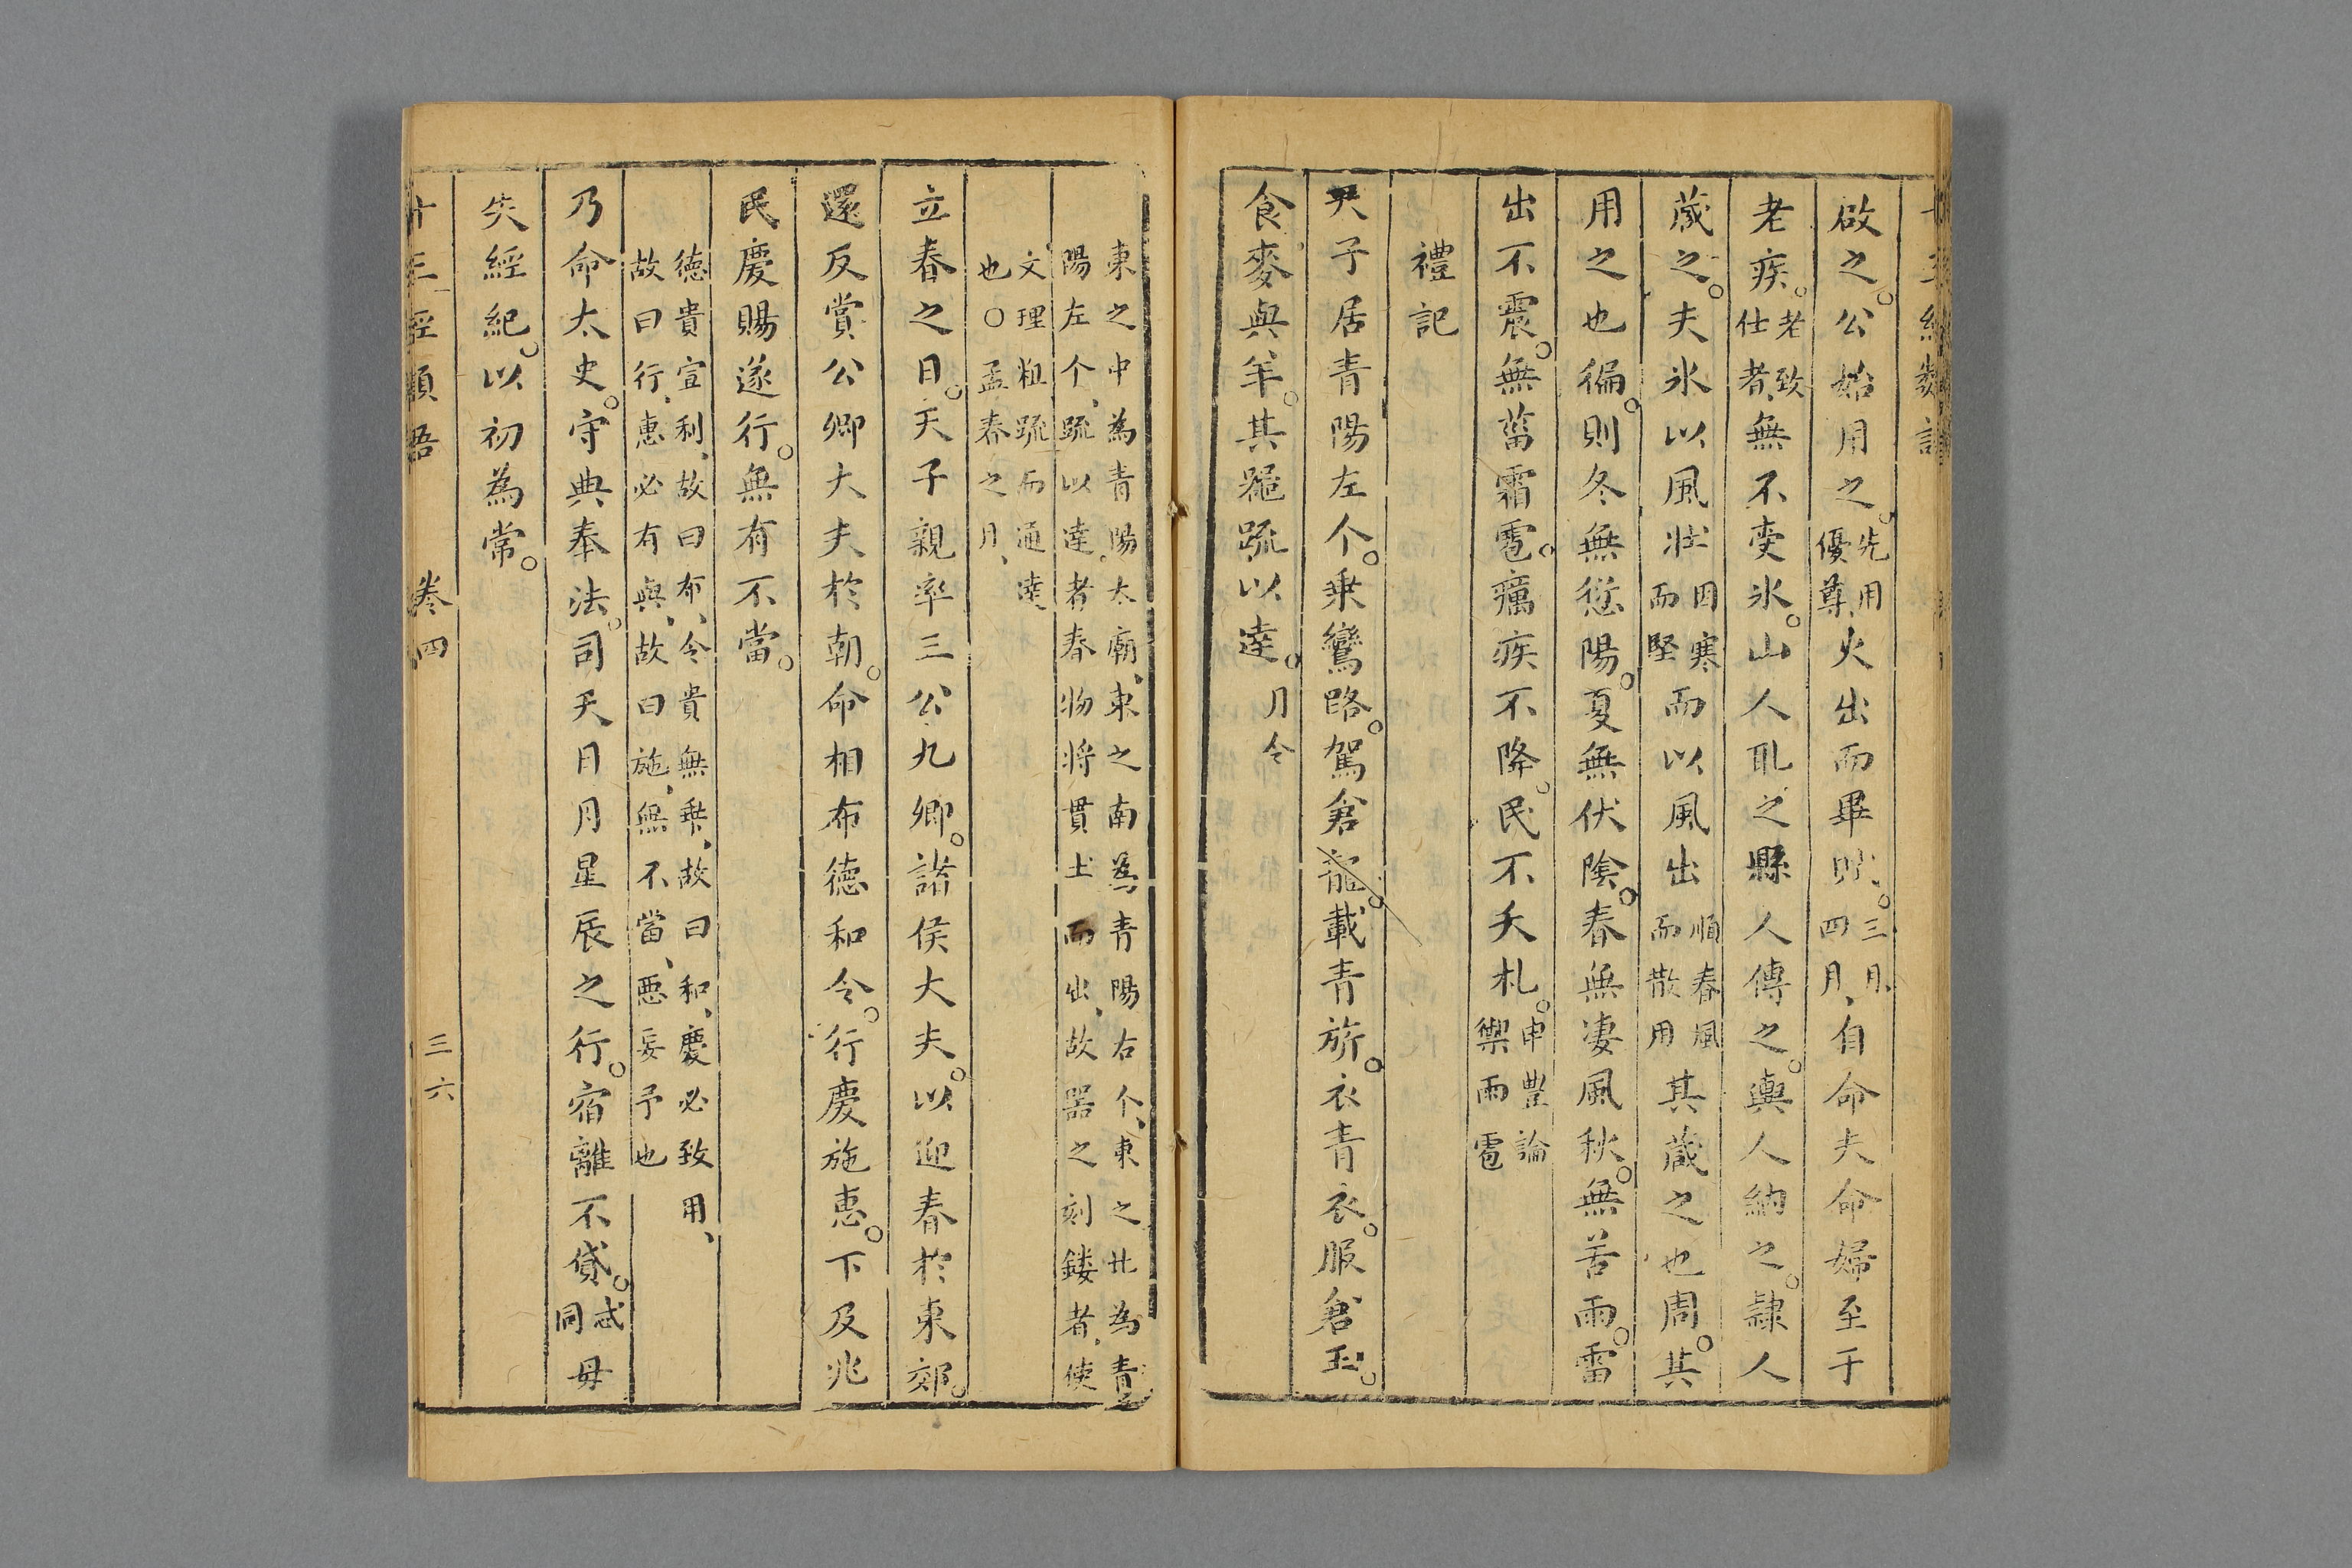 啟之公始用之先用優尊火出而畢賦三月四月自命夫命婦至于
老疾老致仕者無不受氷山人取之縣人傳之輿人納之隷人
蔵之夫氷以風壯因寒而堅而以風出順春風而散用其蔵之也周其
用之也徧則冬無愆陽夏無伏陰春無凄風秋無苦雨雷
出不震無菑霜雹癘疾不降民不夭札申豊論禦雨雹
禮記
天子居青陽左个乗鸞路駕倉龍載青旂衣青衣服倉玉
食麥與羊其器疏以逹月令
東之中為青陽太廟東之南為青陽右个東之北為青
陽左个疏以逹者春物将貫土而出故器之刻鏤者使
文理粗疏而通逹
也○孟春之月
立春之日天子親率三公九卿諸侯大夫以迎春於東郊
還反賞公卿大夫於朝命相布德和令行慶施惠下及兆
民慶賜遂行無有不當
德貴宣利故曰布令貴無乗故曰和慶必致用
故曰行惠必有與故曰施無不當惡妄予也
乃命太史守典奉法司天日月星辰之行宿離不貸忒同毋
失經紀以初為常
十三經類語 卷四 三六